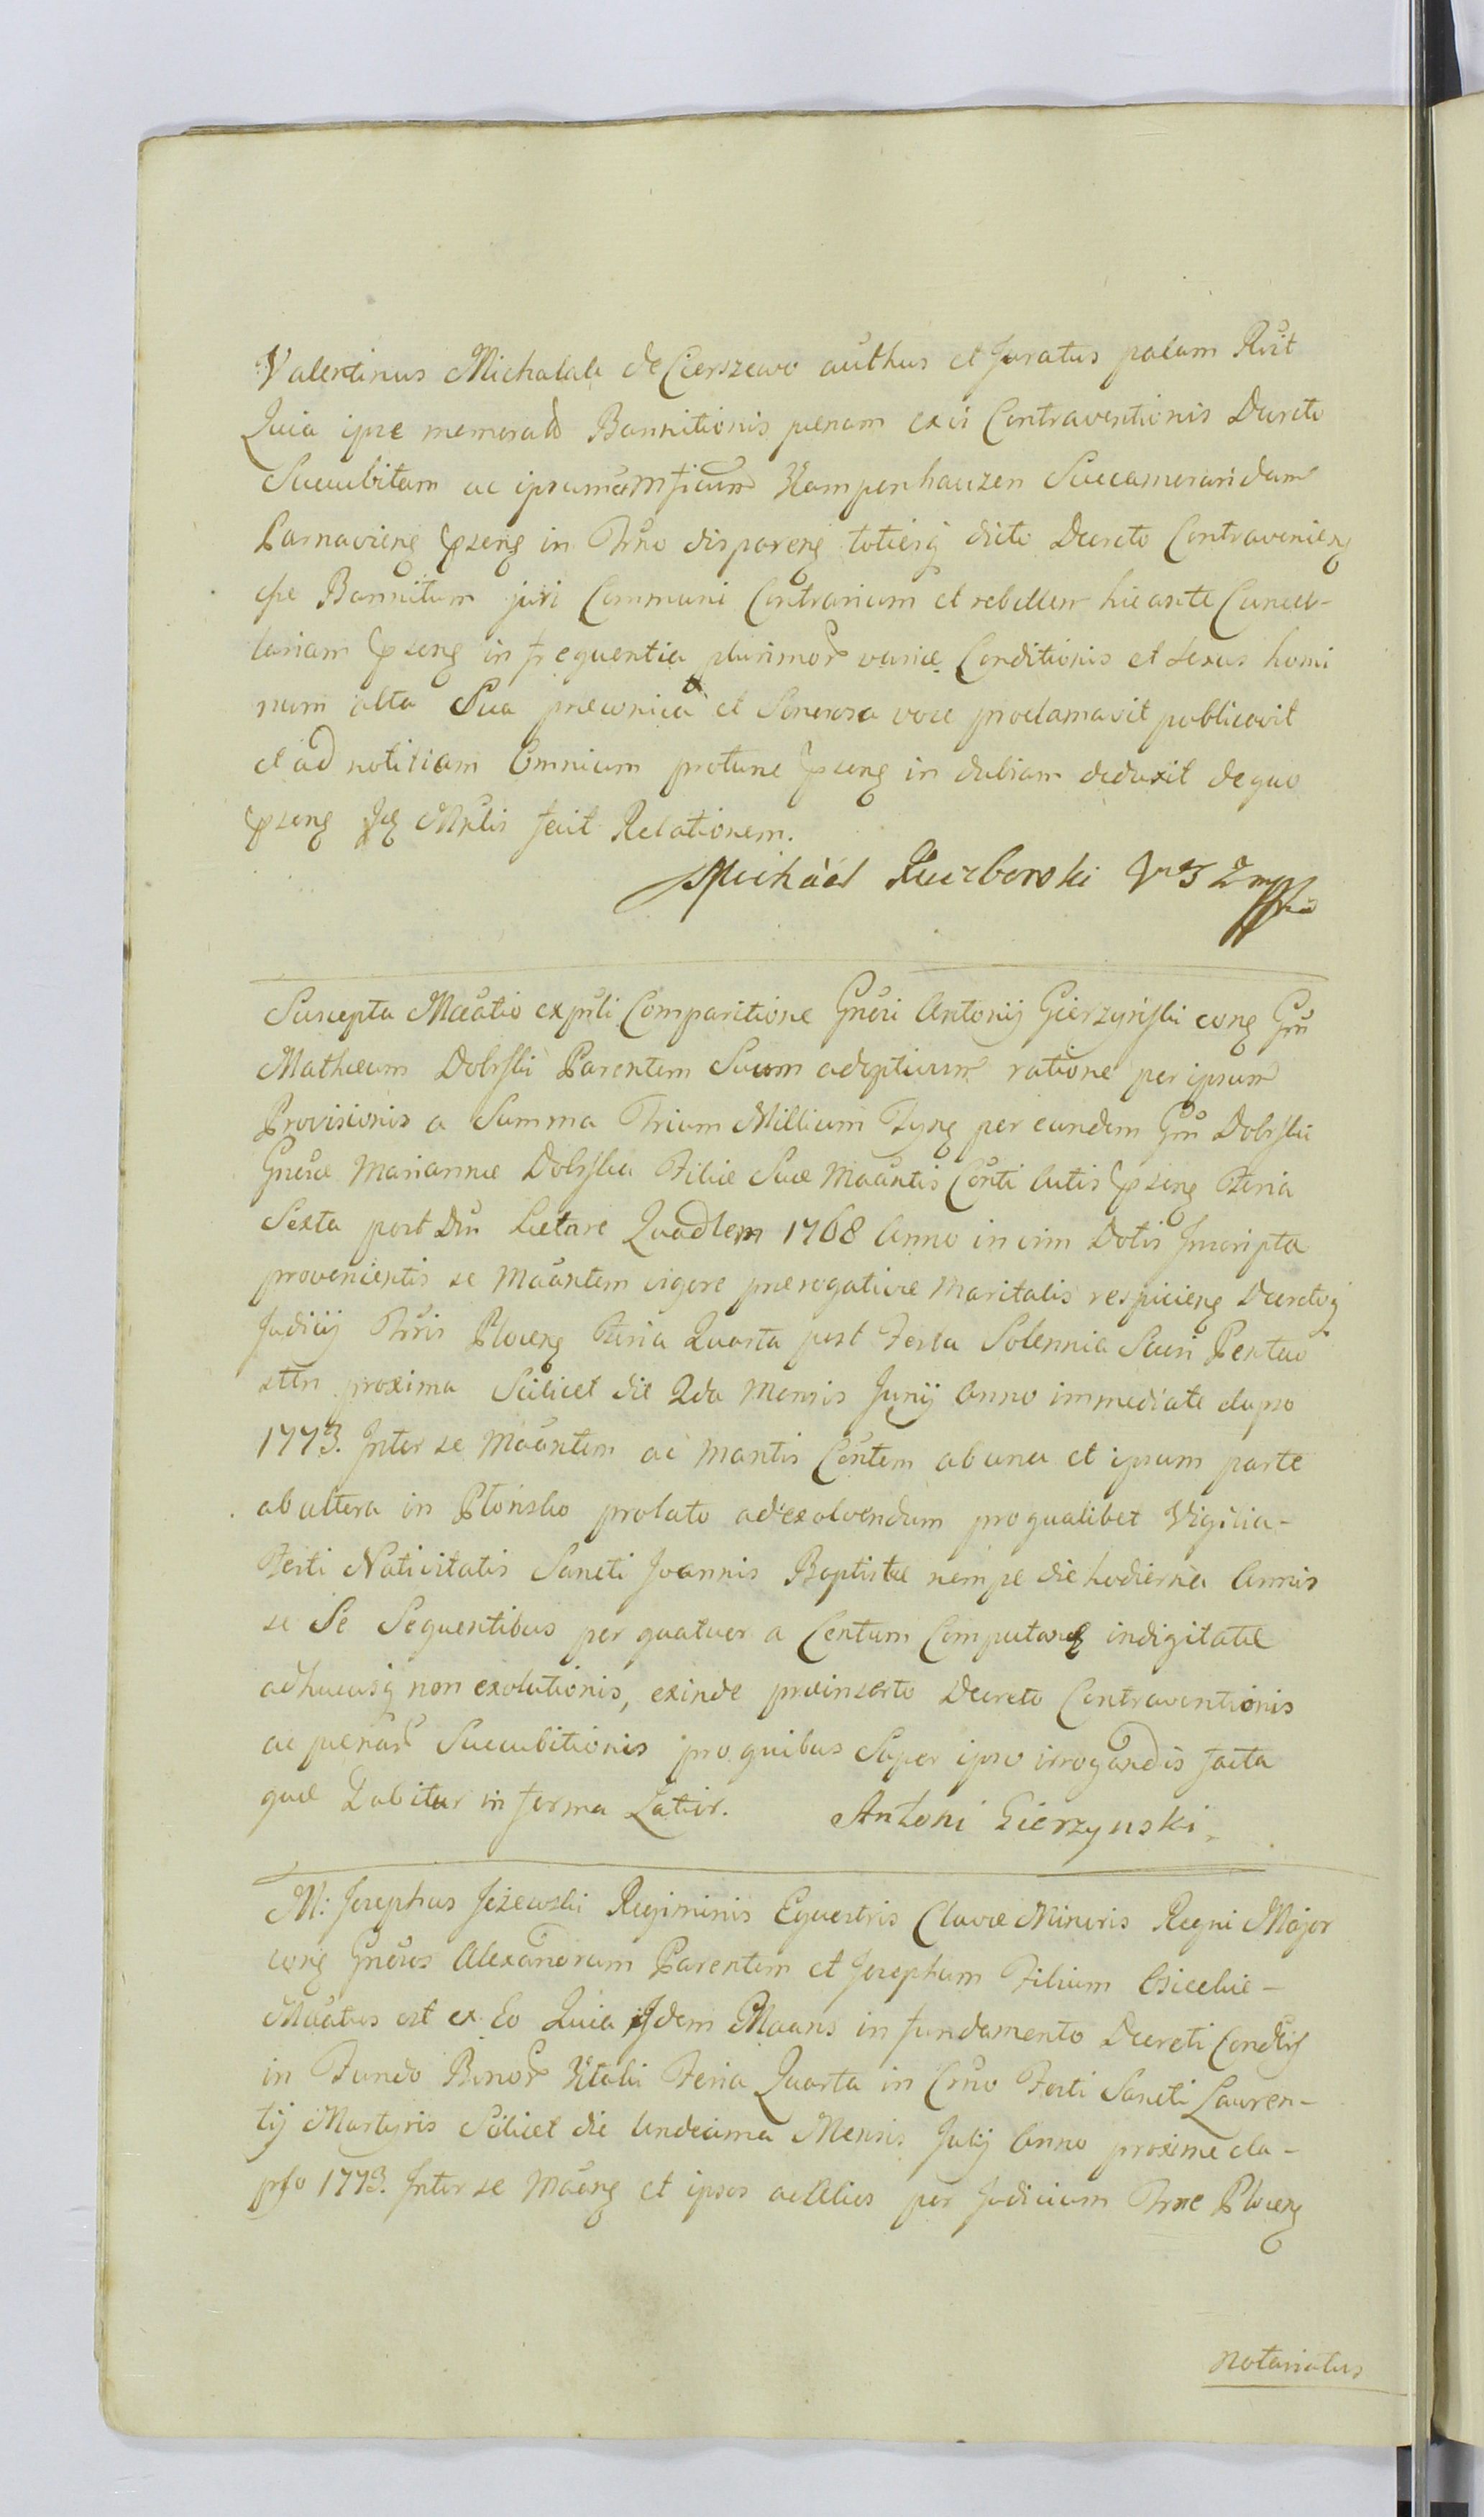 Valentinus Michalak de Cierszewo authus et Juratus palam Rūit
Quia ipse memorato Bannitionis penam ex ii Contraventionis Decreto
Succubitam ac ipsum M ficum Kampenhauzen Succameraridam
Parnavieng in Trno dispareng totiesq dicto Decreto Contravenieng
esse Bannitum juri Communi Contrarium et rebellem hic ante Cancel-
lariam pseng in frequentia plurimor variæ Conditionis et sexus homi
num alta Sua præconica et Sonorosa voce proclamavit publicavit
et ad notitiam Omnium protunc pseng in dubiam deduxit de quo
pseng Jdq Mnlis fecit Relationem.
Michàel Kuczborowski
Suscepta Maătio ex pnli Comparitione Gnŏsi Antonij Gierzyński cong Gnū
Mathæum Dobrski Parentem Suum adoptivum ratione per ipsum
Provisionis a Summa Trium Millium Fynq per eundem Gnū Dobrski
Gnosæ Mariannæ Dobrska Filiæ Suæ Maāntis Cōnti Actis pseng Feria
Sexta post Dnū Lætare Quadlem 1768 Anno in vim Dotis Inscripta
provenientis se Maāntem vigore prærogativæ Maritalis respicieng Decretoq
Judicij Trris Ploceng Feria Quarta post Festa Solennia Sacri Pentec
sttn proxima Scilicet die 2da Mensis Junij Anno immediate elapso
1773. Inter se Maāntem ac Mantis Cōntem ab una et ipsum parte
ab altera in Płońsko prolato ad exolvendum pro qualibet Vigilia-
Festi Nativitatis Sancti Joannis Baptistæ nempe die hodierna Annis
se Se Sequentibus per quatuor a Centum Computanq indigitatæ
adhucusq non exolutionis, exinde præinserto Decreto Contraventionis
ac penar Succubitionis pro quibus Super ipso irrogandis facta
quæ Dabitur in forma Latior. Antoni Gierzynski
M: Josephus Jeżewski Regiminis Equestris Clavæ Minoris Regni Major
cong Gnŏsos Alexandrum Parentem et Josephum Filium Osieckie-
Maătus est ex Eo Quia Idem Maans in fundamento Decreti Condlis
in Fundo Bonor Feria Quarta in Crno Festi Sancti Lauren-
tij Martyris Scilicet die Undecima Mensis Julij Anno proxime ela-
pso 1773. Inter se Maēng et ipsos ac Alios per Judicium Trre Ploceng
Notariatus